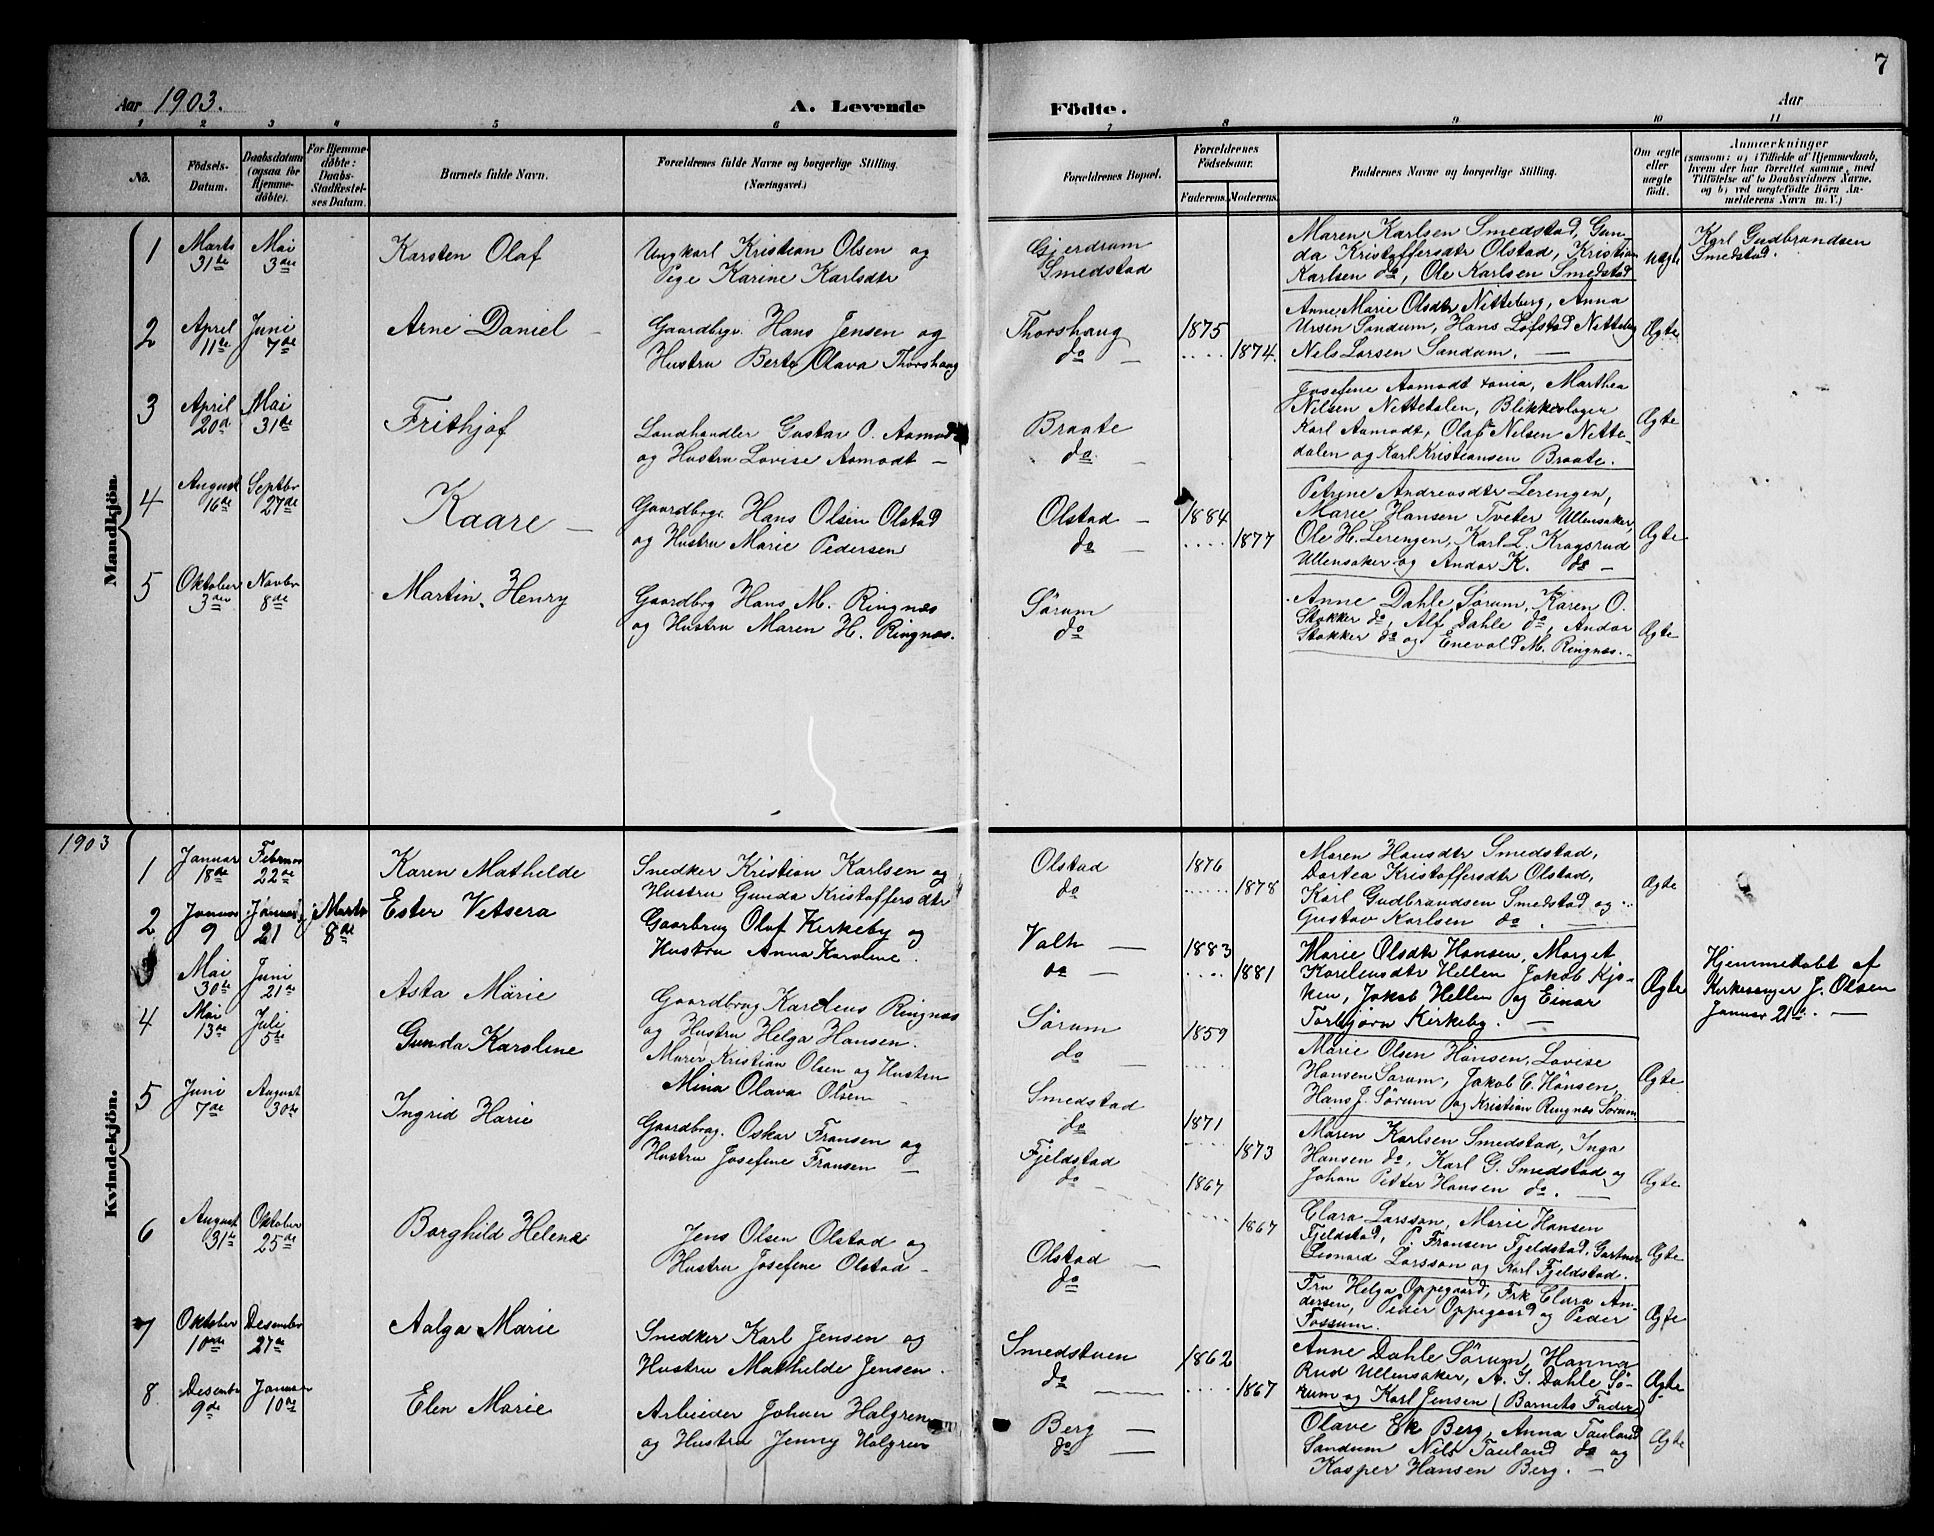 7
Aar 1903.
A. Levende Födte.
Aar
1 2 3 4 5 6 7 8 9 10 11
No.
Födsels-
Datum.
Daabsdatum
(ogsaa for
Hjemme-
döbte).
For Hjemme-
döbte:
Daabs-
Stadfæstel-
ses Datum.
Barnets fulde Navn.
Forældrenes fulde Navne og borgerlige Stilling.
(Næringsvei.)
Forældrenes Bopæl.
Forældrenes
Födselsaar.
Faderens.
Moderens.
Faddernes Navne og borgerlige Stilling.
Om ægte
eller
uægte
födt.
Anmærkninger
(saasom: a) i Tilfælde af Hjemmedaab,
hvem der har forrettet samme, med
Tilföielse af to Daabsvidners Navne,
og b) ved uægtefödte Börn An-
melderens Navn m. V.)
Mandkjön.
1
Marts
31te
Mai
3die
Karsten Olaf
Ungkarl Kristian Olsen og
Pige Karine Karlsdtr
Gjerdrum
Smedstad
Maren Karlsen Smedstad, Gun-
da Kristoffersdtr Olstad, Kristian
Karlsen do, Ole Karlsen Smedstad
Uægte
Karl Gudbrandsen
Smedstad.
2
April
11te
Juni
7de
Arne Daniel
Gaardbgr. Hans Jensen og
Hustru Berte Olava Thorshaug
Thorshaug
do
1875
1874.
Anne Marie Olsdtr Nitteberg, Anna
Ursen Sandum, Hans Lofstad Nitteberg
Nils Larsen Sandum.
Ægte
3
April
20de
Mai
31te
Frithjof
Landhandler Gustav O. Aamodt
og Hustru Lovise Aamodt
Braate
do
Josefine Aamodt Marthea
Nilsen Nittedalen, Blikkeslager
Karl Aamodt, Olaf Nilsen Nitte-
dalen og Karl Kristiansen Braate.
Ægte
4
August
16de
Septbr
27de
Kaare
Gaardbgr. Hans Olsen Olstad
og Hustru Marie Pedersen
Olstad
do
1884
1877
Petrine Andreasdtr Lerengen,
Marie Hansen Tveter Ullensaker,
Ole H. Lerengen, Karl L. Kragsrud
Ullensaker og Andor K. do
Ægte
5
Oktober
3die
Novbr
8de
Martin Henry
Gaardbrg Hans M. Ringnæs
og Hustru Maren H. Ringnæs.
Sörum
do
Anne Dahle Sörum, Karen O.
Stokker do, Alf Dahle do, Andor
Stokker do og Enevold M. Ringnæs.
Ægte
1903
Kvindekjön.
1
Januar
18de
Februar
22de
Karen Mathelde
Snedker Kristian Karlsen og
Hustru Gunda Kristoffersdtr
Olstad
do
1876
1878
Maren Hansdtr Smedstad,
Dortea Kristoffersdtr Olstad,
Karl Gudbrandsen Smedstad og
Gustav Karlsen do.
Ægte
2
Januar
9
Januar
21
Marts
8de
Ester Vetsera
Gaarbrug Olaf Kirkeby og
Hustru Anna Karoline.
Valh
do
1883
1881
Marie Olsdtr Hansen, Marget
Karelensdtr Hellen Jakob Kjö-
ken, Jakob Hellen og Einar
Torbjörn Kirkeby.
Ægte
Hjemmedöbt af
Kirkesanger J. Olsen
Januar 21de.
3
Mai
30te
Juni
21de
Asta Marie
Gaardbrug Karelius Ringnæs
og Hustru Helga Hansen.
Sörum
do
1859
Marie Olsen Hansen, Lovise
Hansen Sörum, Jakob C. Hansen,
Hans J. Sörum og Kristian Ringnæs Sörum
Ægte
4
Mai
13de
Juli
5te
Gunda Karoline
Murer Kristian Olsen og Hustru
Mina Olava Olsen
Smedstad
do
1871
1873
Maren Karlsen Smedstad, Inga
Hansen do, Karl G. Smedstad og
Johan Petter Hansen do.
Ægte
5
Juni
7de
August
30te
Ingrid Marie
Gaardbrug. Oskar Fransen og
Hustru Josefine Fransen
Fjeldstad
do
1867
1867
Clara Larsson, Marie Hansen
Fjeldstad, P Fransen Fjeldstad, Gartner
Leonard Larsson og Karl Fjeldstad.
Ægte
6
August
31te
Oktober
25de
Borghild Helene
Jens Olsen Olstad og
Hustru Josefine Olstad
Olstad
do
Fru Helga Oppegaard, Frk Clara An-
dersen, Peder Oppegaard og Peder
Fossum.
Ægte
7
Oktober
10de
Desember
27de
Aalga Marie
Snedker Karl Jensen og
Hustru Mathilde Jensen.
Smedstuen
do
1862
1867
Anne Dahle Sörum, Hanna
Rud Ullensaker, A. G. Dahle Sö-
rum og Karl Jensen (Barnets Fader)
Ægte
8
Desembr
9de
Januar
10de
Elen Marie
Arbeider Johan Halgren
og Hustru Jenny Halgren
Berg
do
Olave Ek Berg, Anna Tauland
Sandum Nils Tauland do og
Kasper Hansen Berg.
Ægte